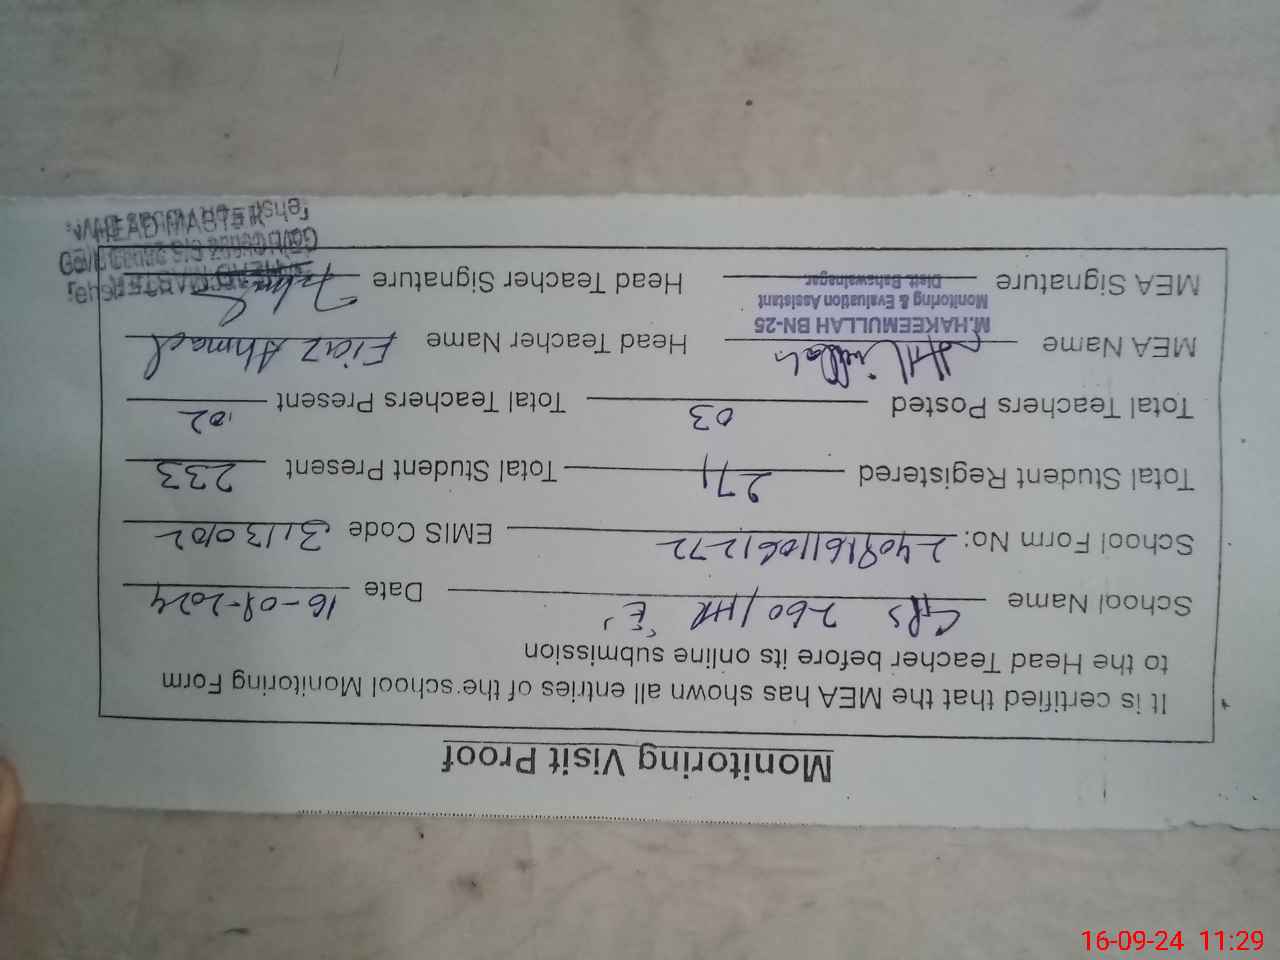 Monitoring Visit Proof
It is certified that the MEA has shown all entries of the school Monitoring Form
to the Head Teacher before its online submission
School Name GPS 260/HR "E" Date 16-09-2024
School Form No: EMIS Code 31130102
Total Student Registered 271 Total Student Present 233
Total Teachers Posted 03 Total Teachers Present 02
MEA Name Head Teacher Name Fiaz Ahmad
M.HAKEEMULLAH BN-25
Monitoring & Evaluation Assistant
Distt. Bahawalnagar
MEA Signature Head Teacher Signature
HEAD MASTER
16-09-24 11:29